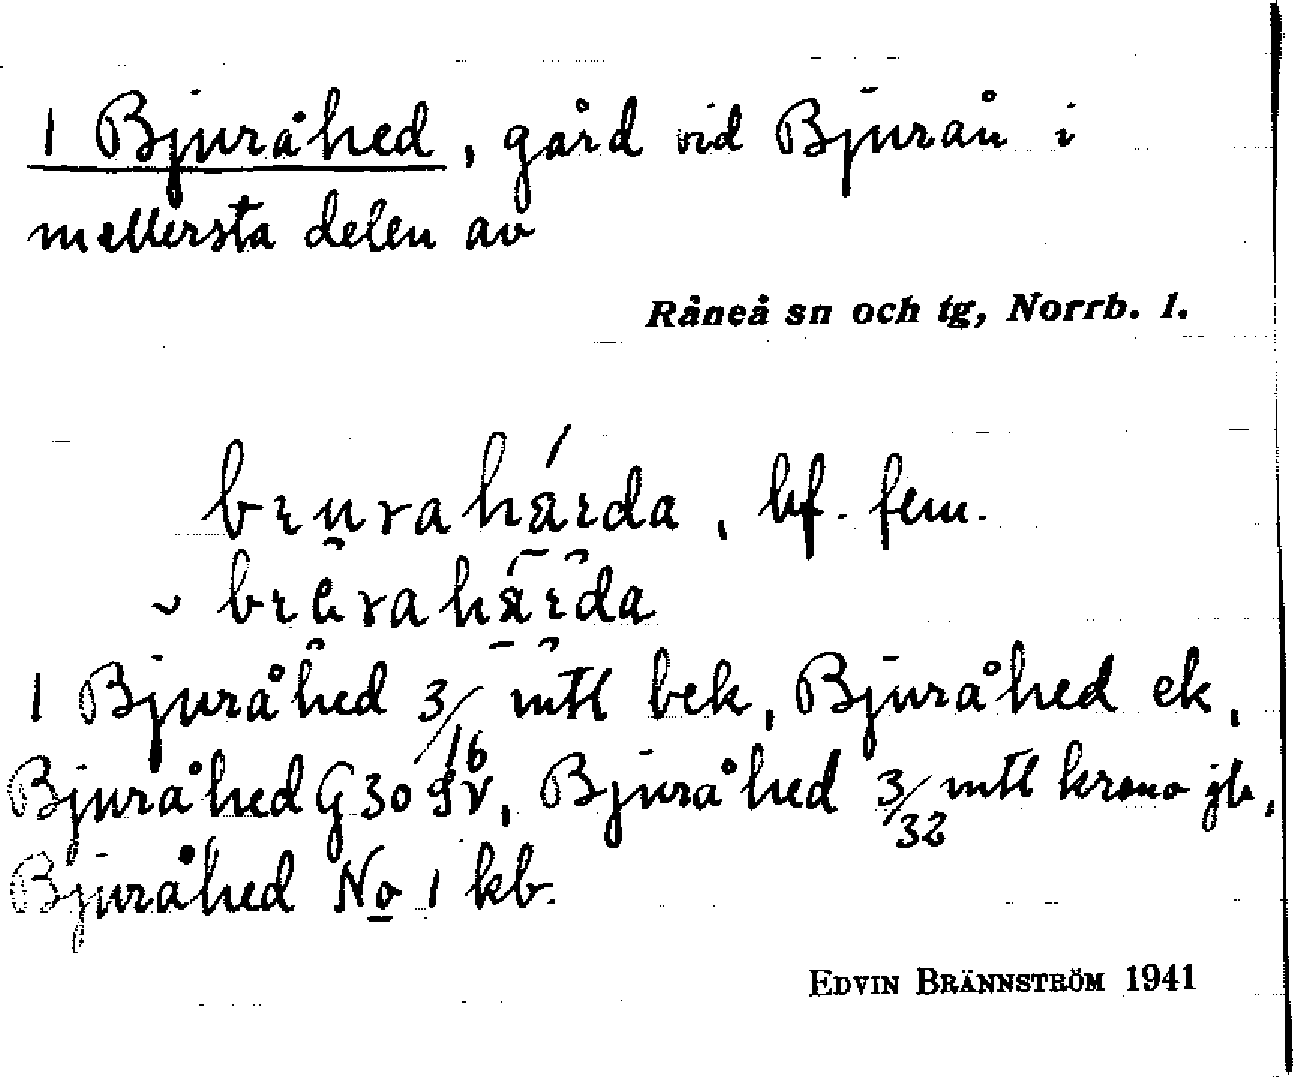 1 Bjuråhed, gård vid Bjurån i
mellersta delen av
Råneå sn och tg, Norrb. l.
bf. fem.
1 Bjuråhed 3/16 mtl bek, Bjuråhed ek,
Bjuråhed G 30 sv, Bjuråhed 3/32 mtl krono jb,
Bjuråhed No 1 kb.
EDVIN BRÄNNSTRÖM 1941